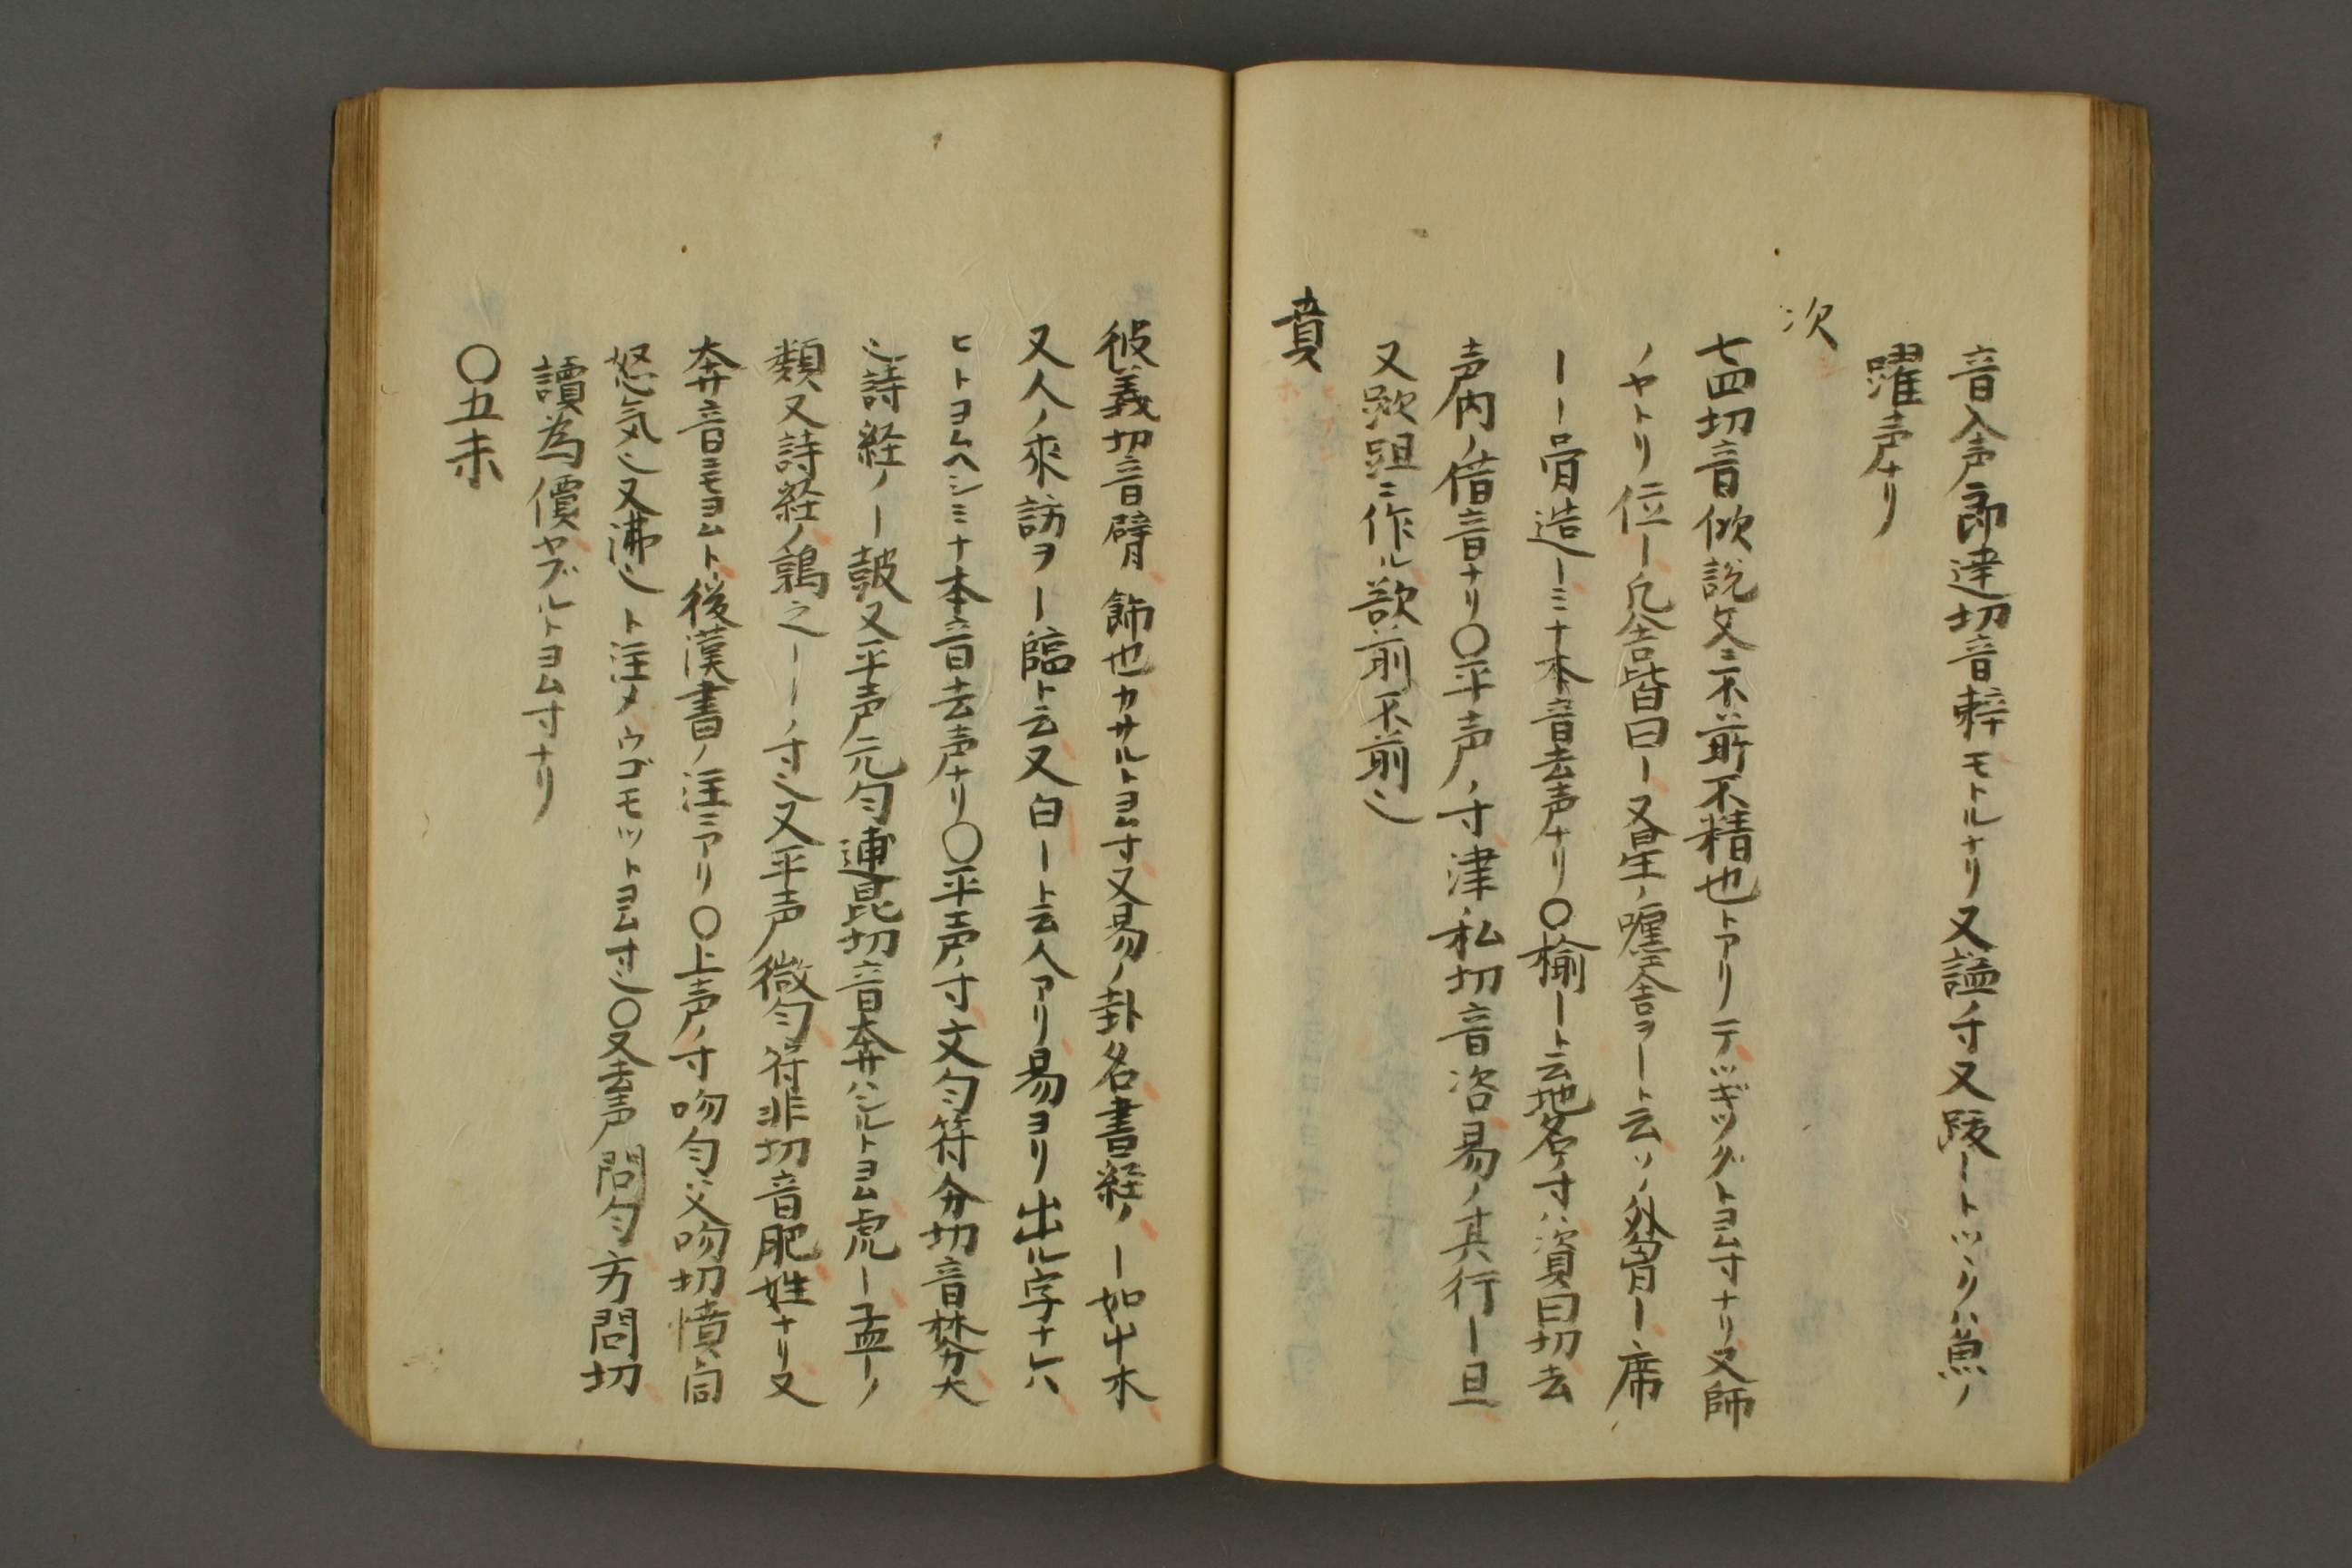 音入声郎達切音辢モトルナリ又謚ノ寸又跋ートツヽリハ魚ノ
躍声ナリ
次
七四切音佽説文ニ不前不精也トアリテツギツグトヨム寸ナリ又師
ノヤトリ位ー凡舎皆曰ー又星ノ躔舎ヲート云ソノ外胥ー席
ーー骨造ーミナ本音去声ナリ〇榆ート云地名ノ寸ハ資曰切去
声内ノ借音ナリ〇平声ノ寸津私切音咨易ノ其行ー且
又趑跙ニ作ル欲前不前〻
賁
彼義切音臂飾也カサルトヨム寸又易ノ卦名書経ノー如草木
又人ノ来訪ヲー臨ト云又白ート云人アリ易ヨリ出ル字ナレハ
ヒトヨムヘシミナ本音去声ナリ〇平声ノ寸文匀符分切音焚大
〻詩経ノー鼓又平声元匀逋昆切音奔ハシルトヨム虎ー孟ーノ
類又詩経ノ鶉之ーーノ寸〻又平声微匀符非切音肥姓ナリ又
奔音ニモヨムト後漢書ノ注ニアリ〇上声ノ寸吻匀父吻切憤同
怒気〻又沸〻ト注メウゴモツトヨム寸〻〇又去声問匀方問切
讀為僨ヤブルトヨム寸ナリ
〇五未